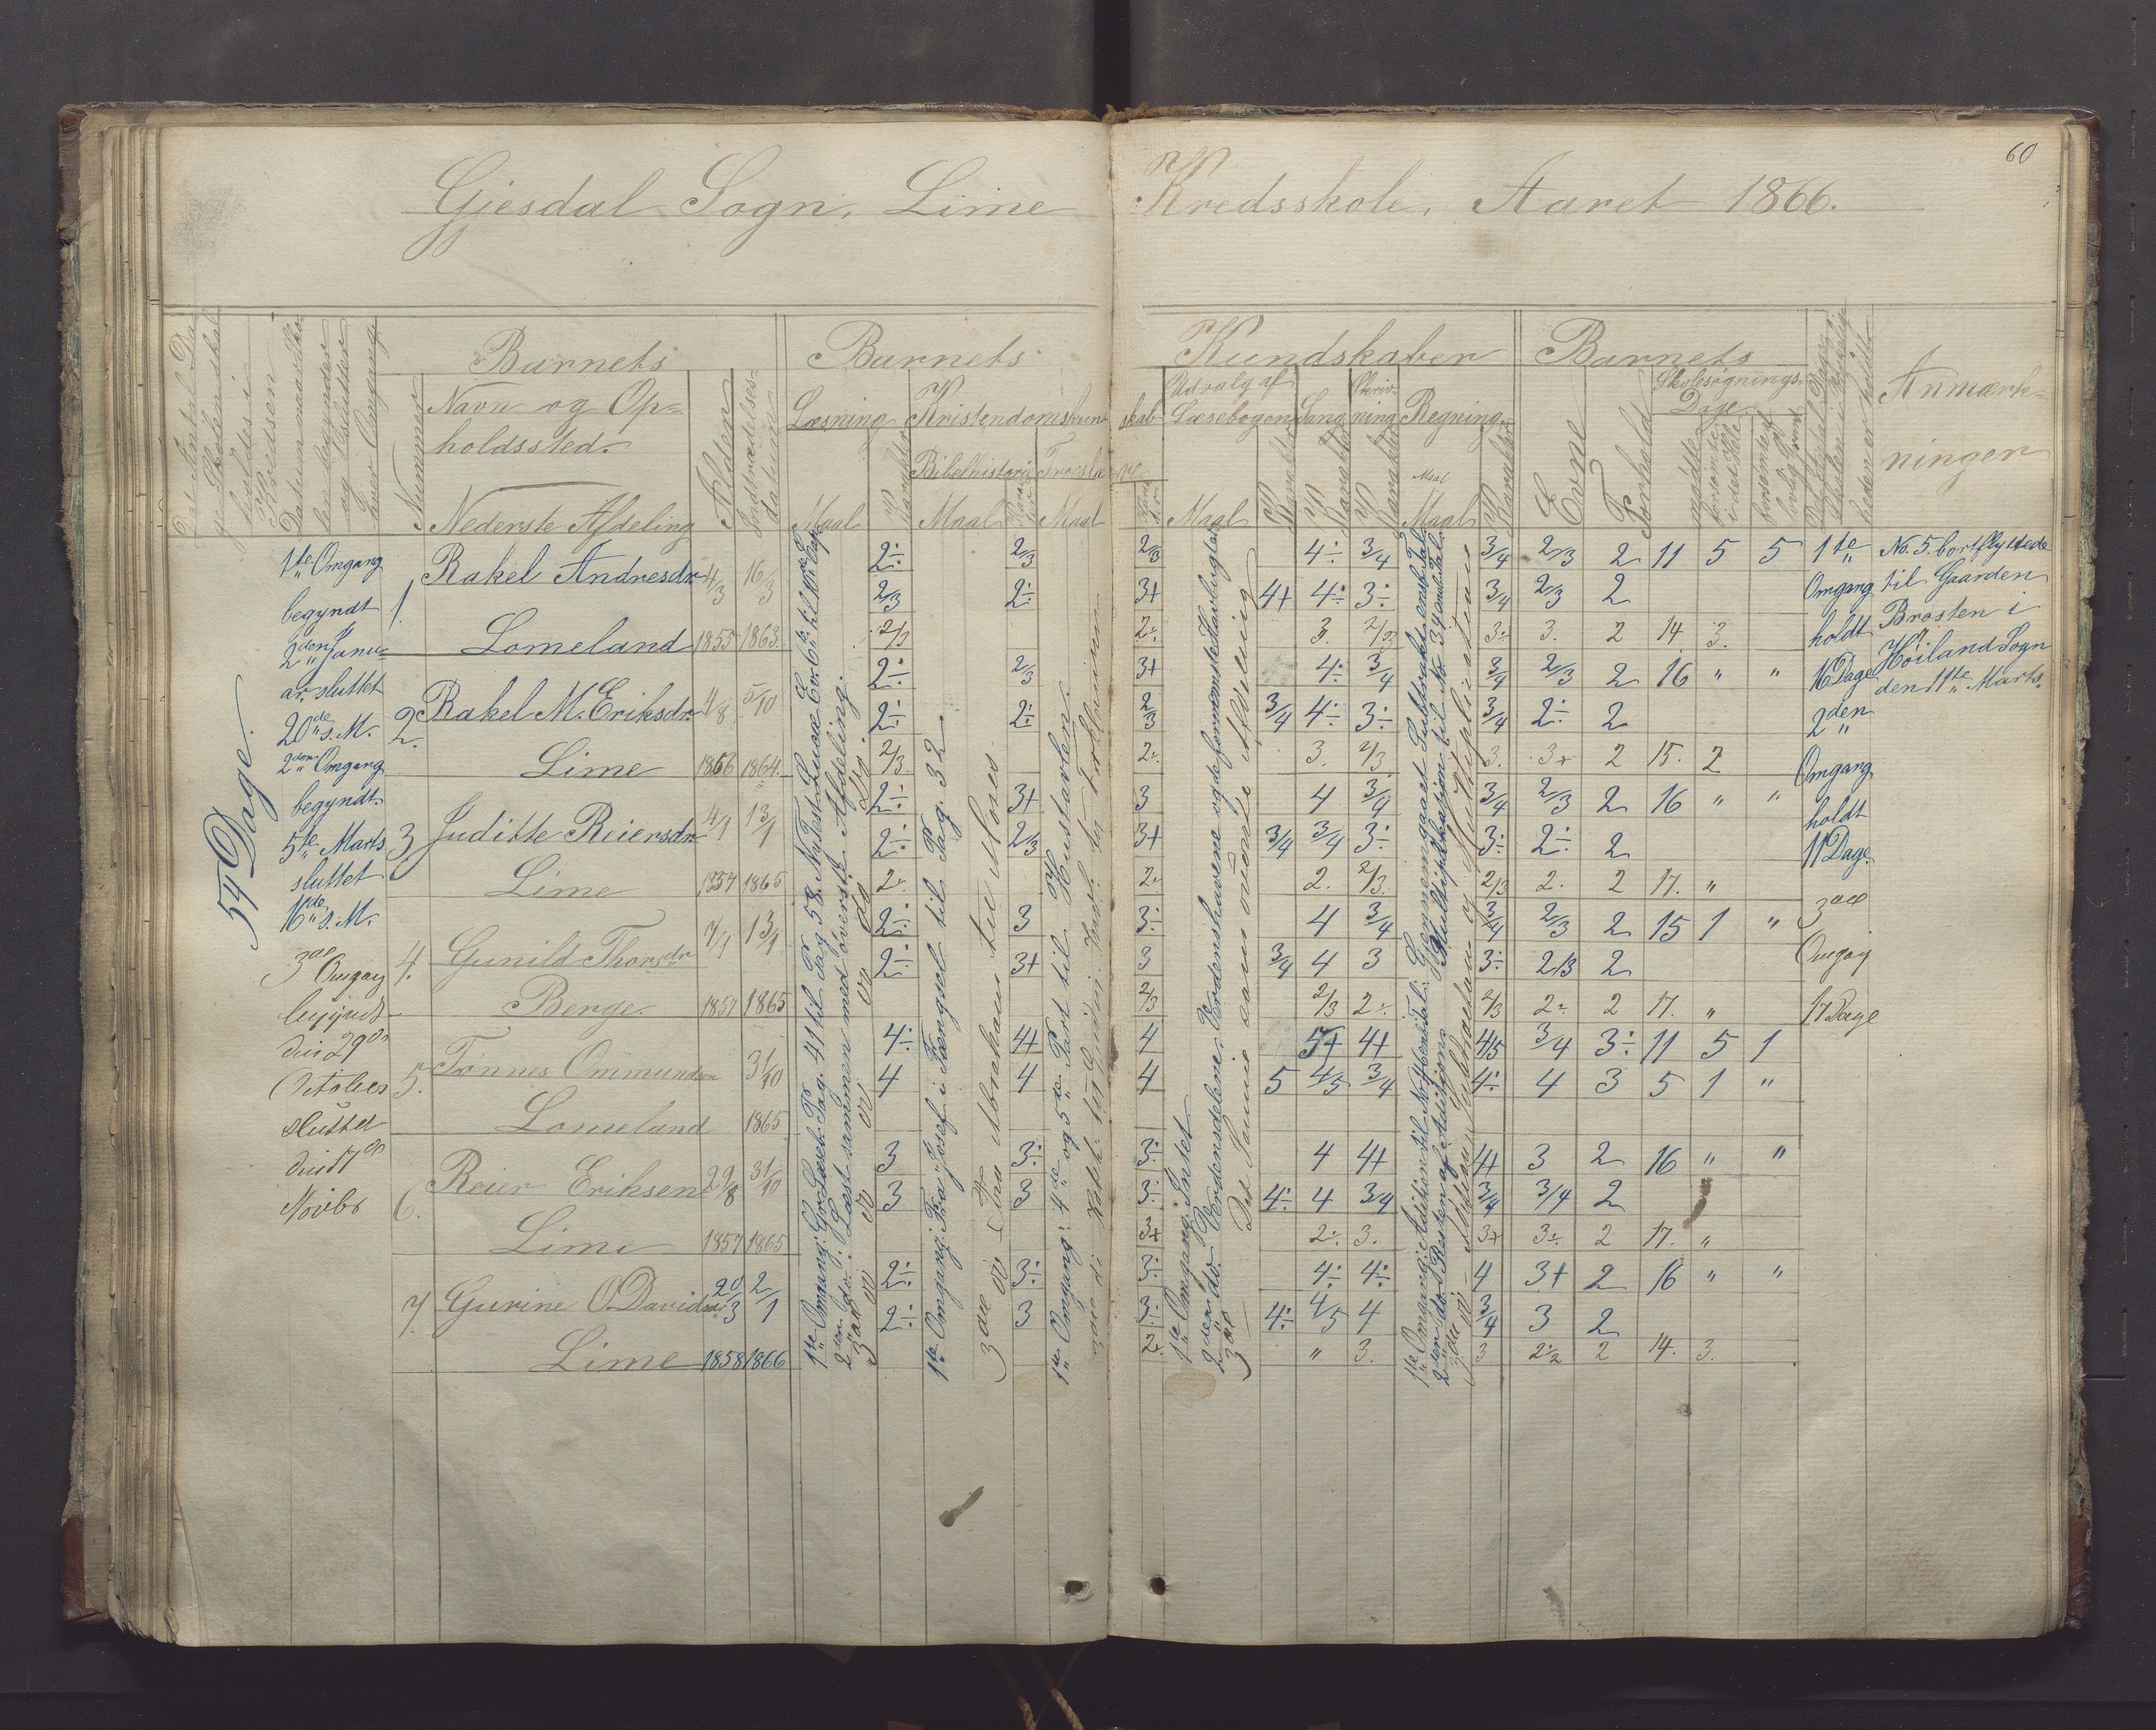 60
Gjesdal Sogn, Lime Kredsskole, Aaret 1866.
Barnets
Barnets
Kundskaber
Barnets
Anmærk-
ninger
Det Antal Da-
ge Skolen skal
holdes i
Kredsen
Datum naar Sko-
len begynder
og slutter
hver Omgang
Nummer
Navn og Op-
holdssted.
Nederste Afdeling
Alder
Indtrædelses-
datum
Læsning
Maal
Karakter
Kristendomskund-
skab
Bibelhistorie
Maal
Karakter
Troeslære
Maal
Udvalg af
Læsebogen
Maal
Karakter
Sang
Karakter
Skriv-
ning
Karakter
Regning
Maal
Maal
Karakter
Evne
Forhold
Skolesøgnings-
Dage.
mødte
forsømte
i det Hele
forsømte af
lovlig Grund
54 Dage.
1te Omgang
begyndt
2den Janu-
ar sluttet
20de s. M.
2den Omgang
begyndt
5te Marts
sluttet
16de s. M.
3die Omgang
begyndt
den 29de
October
sluttet
den 17de
Novbr
1. Rakel Andresdr. 4/3 16/3
Lomeland 1855 1863
2. Rakel M. Eriksdr. 4/8 5/10
Lime 1856 1864
3 Juditte Reiersdr 4/1 13/1
Lime 1857 1865
4. Gunild Thorsdr 7/1 13/1
Berge 1857 1865
5. Tønnes Ommundsen 31/10
Lomeland 1865
6. Reier Eriksen 29/8 31/10
Lime 1857 1865
7. Gurine O. Davidsdr 20/3 2/1
Lime 1858 1866
1te Omgang: Gr. Læseb. Pag. 41 til Pag. 58. Ny Test. Lucas Ev. 6te til Kap.
2den do: Læst sammen med øverste Afdeling.
3die
1te Omgang: Fra Josef i Fængsel til Pag. 32
3die Fra Abraham til Moses
1te Omgang: 4de og 5te Part til Hustavlen.
1te Omgang: Intet
2den do Verdensdelene, Verdenshavene og de fornemste Havbugter.
3die Det Samme som øverste Afdeling
1te Omgang: Adition til No 4 benævnte Tal: Gjennemgaaet Subtraktion ens. Tal.
2den do: Resten af Aditions Multiplikation til No 34 ens Tal.
3die Adition, Subtraktion og Multiplication
2÷ 2/3 2/3 4÷ 3/4 3/4 2/3 2 11 5 5
2/3 2÷ 3+ 4+ 4÷ 3÷ 3/4 2/3 2
2/3 2÷ 3. 2/3 3÷ 3. 2 14. 3.
2÷ 2/3 3+ 4÷ 3/4 3/4 2/3 2 16 " "
2÷ 2÷ 2/3 3/4 4÷ 3÷ 3/4 2÷ 2
2/3. 2÷ 3. 2/3 3. 3+ 2 15. 2
2÷ 3+ 3 4 3/4 3/4 2/3 2 16 " "
2÷ 2/3 3+ 3/4 3/4 3÷ 3÷ 2÷ 2
2÷ 2÷ 2. 2/3. 2/3 2. 2 17. "
2÷ 3 3÷ 4 3/4 3/4 2/3 2 15 1 "
2÷ 3+ 3 3/4 4 3 3÷ 2/3 2
2/3 2/3 2÷ 2/3 2÷ 2 17. "
4÷ 4+ 4 5+ 4+ 4/5 3/4 3÷ 11 5 1
4 4 4 5 4/5 3/4 4÷ 4 3 5 1 "
3 3÷ 3÷ 4 4+ 4+ 3 2 16 " "
3 3 3÷ 4÷ 4 3/4 3/4 3/4 2
3+ 2÷ 3. 3+ 3÷ 2 17. "
2÷ 3÷ 3÷ 4÷ 4÷ 4 3+ 2 16 " "
2÷ 3 3÷ 4÷ 4/5 4 3/4 3 2
2÷ " 3. 3 2 14. 3.
1te
Omgang
holdt
16 Dage
2den
Omgang
holdt
11 Dage
3die
Omgang
17 Dage
No. 5. bortflyttede
til Gaarden
Brosten i
Høiland Sogn
den 11te Marts.